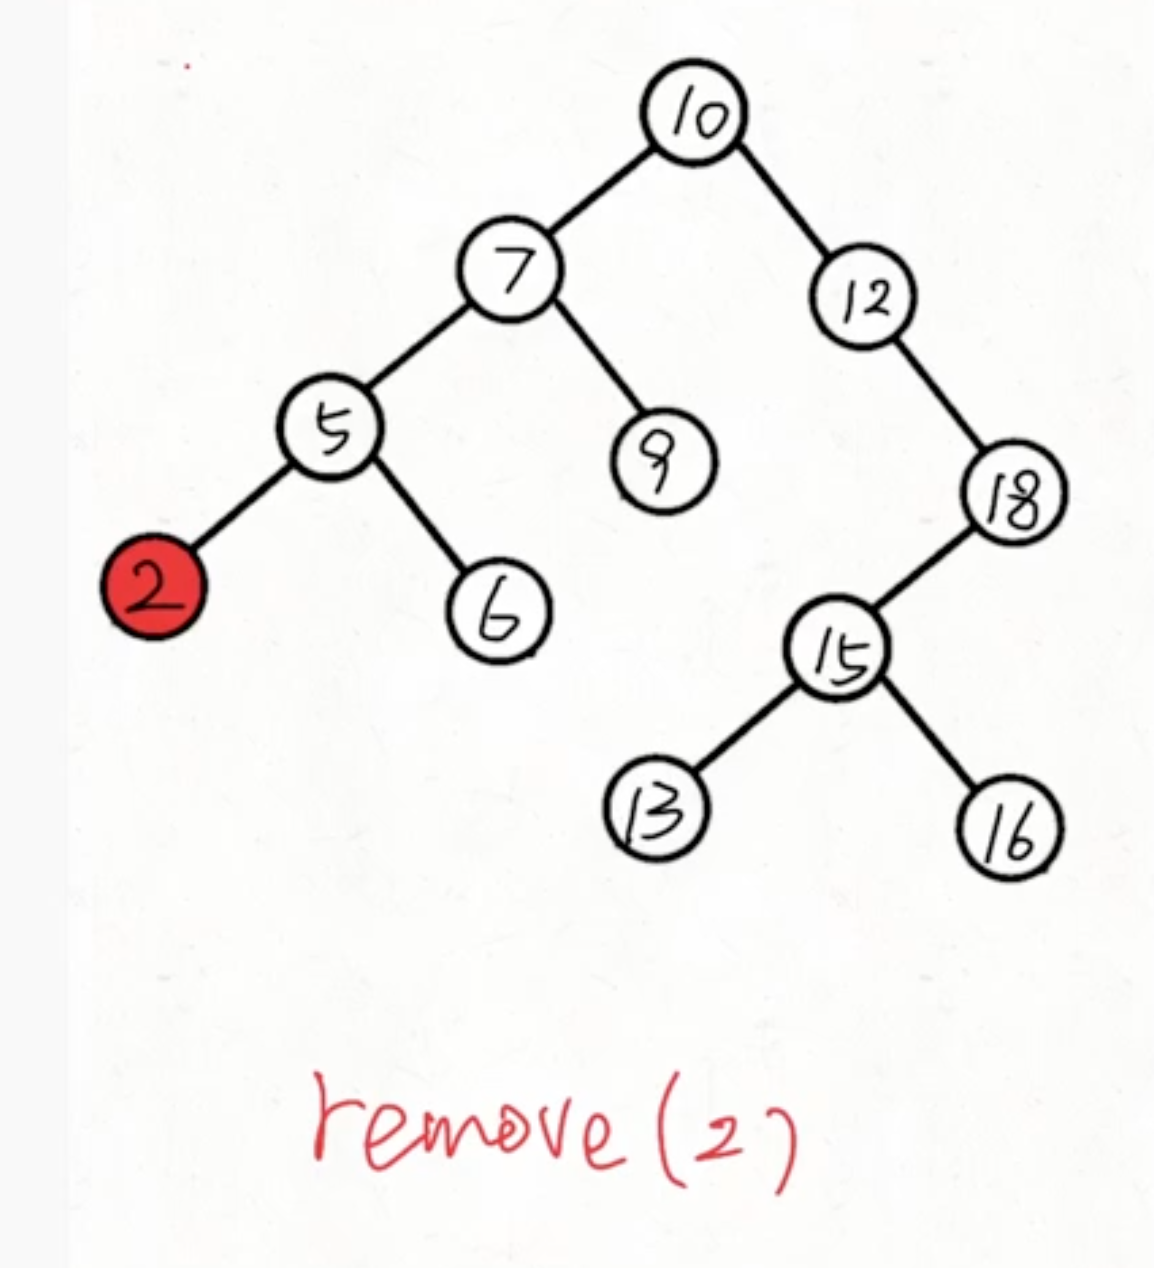 10
7
12
5
9
18
2
6
15
13
16
remove(2)